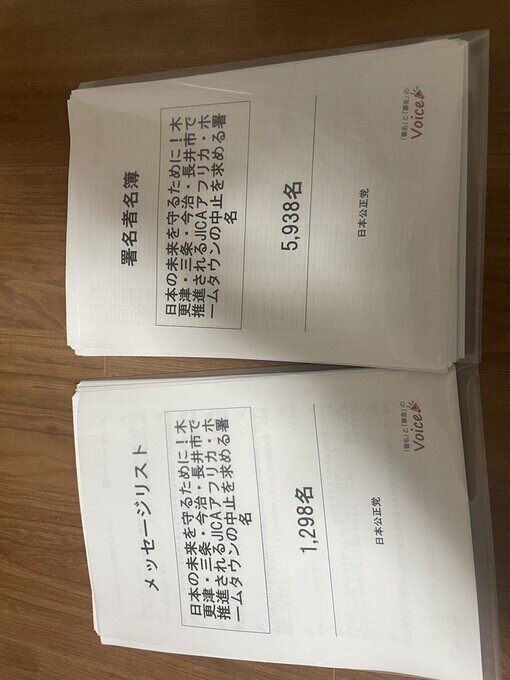 署名者名簿
日本の未来を守るために!木
更津・三条・今治・長井市で
推進されるJICAアフリカ・ホ
ームタウンの中止を求める署
名
5,938名
日本公正党
「署名」と「募金」の
Voice
メッセージリスト
日本の未来を守るために!木
更津・三条・今治・長井市で
推進されるJICAアフリカ・ホ
ームタウンの中止を求める署
名
1,298名
日本公正党
「署名」と「募金」の
Voice